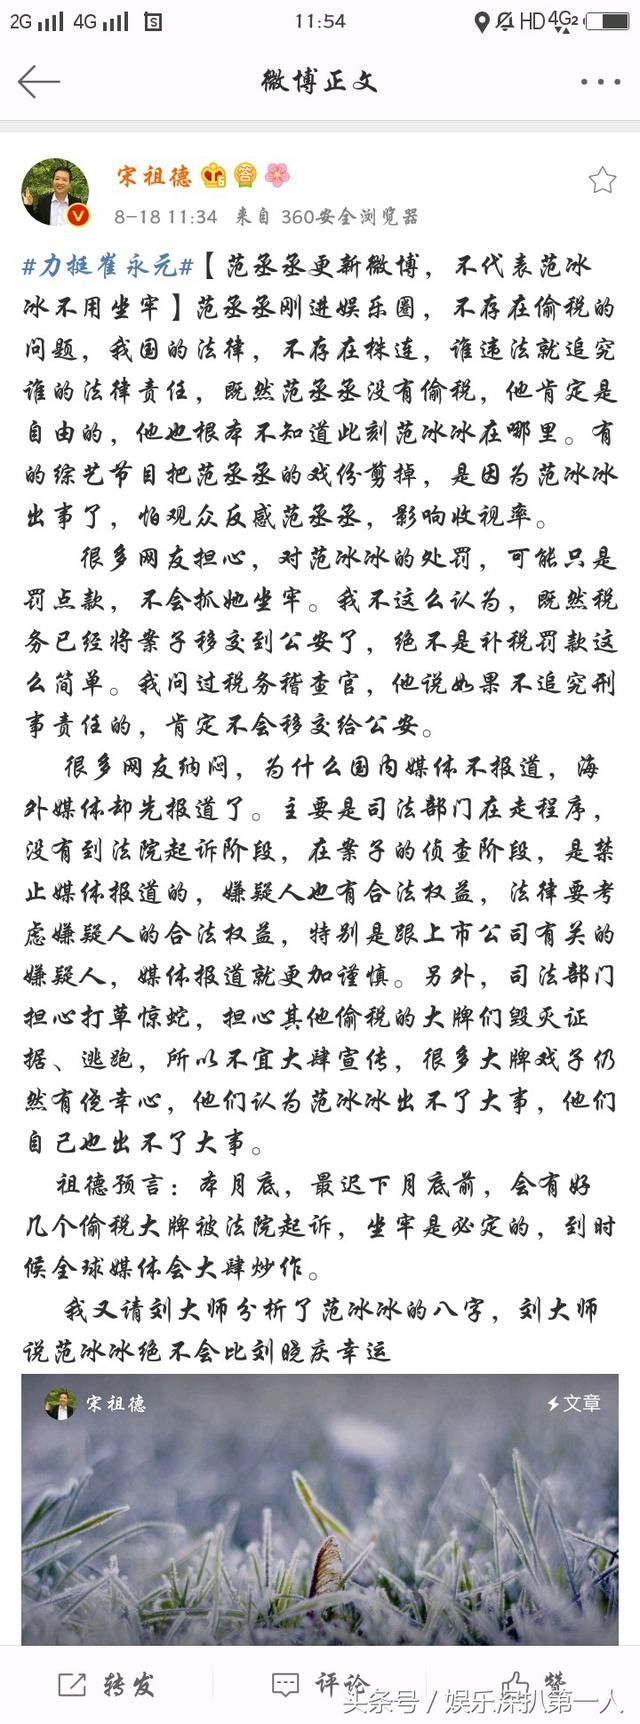 2G 4G 11:54 HD 4G2
微博正文
宋祖德 答
8-18 11:34 来自 360安全浏览器
#力挺崔永元#【范丞丞更新微博，不代表范冰
冰不用坐牢】范丞丞刚进娱乐圈，不存在偷税的
问题，我国的法律，不存在株连，谁违法就追究
谁的法律责任，既然范丞丞没有偷税，他肯定是
自由的，他也根本不知道此刻范冰冰在哪里。有
的综艺节目把范丞丞的戏份剪掉，是因为范冰冰
出事了，怕观众反感范丞丞，影响收视率。
很多网友担心，对范冰冰的处罚，可能只是
罚点款，不会抓她坐牢。我不这么认为，既然税
务已经将案子移交到公安了，绝不是补税罚款这
么简单。我问过税务稽查官，他说如果不追究刑
事责任的，肯定不会移交给公安。
很多网友纳闷，为什么国内媒体不报道，海
外媒体却先报道了。主要是司法部门在走程序，
没有到法院起诉阶段，在案子的侦查阶段，是禁
止媒体报道的，嫌疑人也有合法权益，法律要考
虑嫌疑人的合法权益，特别是跟上市公司有关的
嫌疑人，媒体报道就更加谨慎。另外，司法部门
担心打草惊蛇，担心其他偷税的大牌们毁灭证
据、逃跑，所以不宜大肆宣传，很多大牌戏子仍
然有侥幸心，他们认为范冰冰出不了大事，他们
自己也出不了大事。
祖德预言：本月底，最迟下月底前，会有好
几个偷税大牌被法院起诉，坐牢是必定的，到时
候全球媒体会大肆炒作。
我又请刘大师分析了范冰冰的八字，刘大师
说范冰冰绝不会比刘晓庆幸运
宋祖德 文章
转发 评论 赞
头条号 / 娱乐深扒第一人